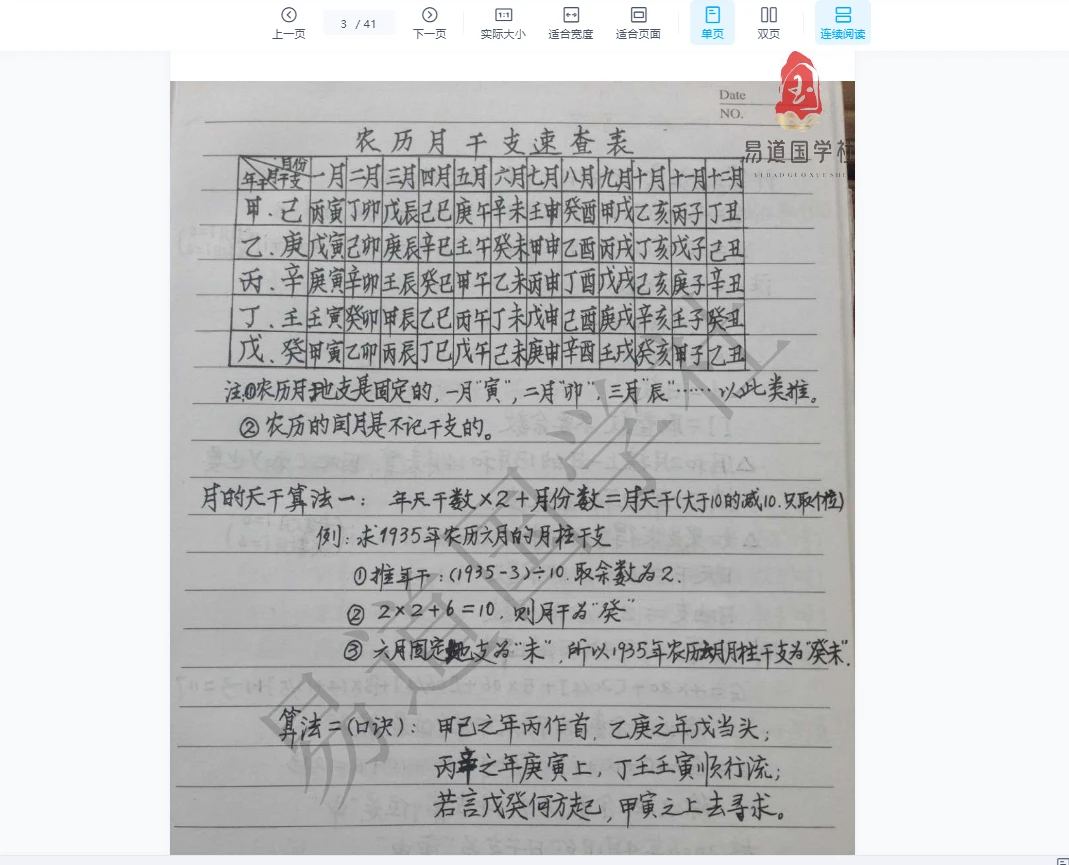 上一页 3 / 41 下一页 实际大小 适合宽度 适合页面 单页 双页 连续阅读
Date
NO.
易道国学社
YI DAO GUO XUE SHE
农历月干支速查表
年干 月干支 月份 一月 二月 三月 四月 五月 六月 七月 八月 九月 十月 十一月 十二月
甲.己 丙寅 丁卯 戊辰 己巳 庚午 辛未 壬申 癸酉 甲戌 乙亥 丙子 丁丑
乙.庚 戊寅 己卯 庚辰 辛巳 壬午 癸未 甲申 乙酉 丙戌 丁亥 戊子 己丑
丙.辛 庚寅 辛卯 壬辰 癸巳 甲午 乙未 丙申 丁酉 戊戌 己亥 庚子 辛丑
丁.壬 壬寅 癸卯 甲辰 乙巳 丙午 丁未 戊申 己酉 庚戌 辛亥 壬子 癸丑
戊.癸 甲寅 乙卯 丙辰 丁巳 戊午 己未 庚申 辛酉 壬戌 癸亥 甲子 乙丑
注:①农历月地支是固定的,一月"寅",二月"卯",三月"辰"……以此类推。
②农历的闰月是不记干支的。
月的天干算法一: 年天干数×2+月份数=月天干(大于10的减10.只取个位)
例:求1935年农历六月的月柱干支
①推年干:(1935-3)÷10.取余数为2.
②2×2+6=10.则月干为"癸"
③六月固定地支为"未",所以1935年农历六月月柱干支为"癸未".
算法二(口诀): 甲己之年丙作首,乙庚之年戊当头;
丙辛之年庚寅上,丁壬壬寅顺行流;
若言戊癸何方起,甲寅之上去寻求。
易道国学社